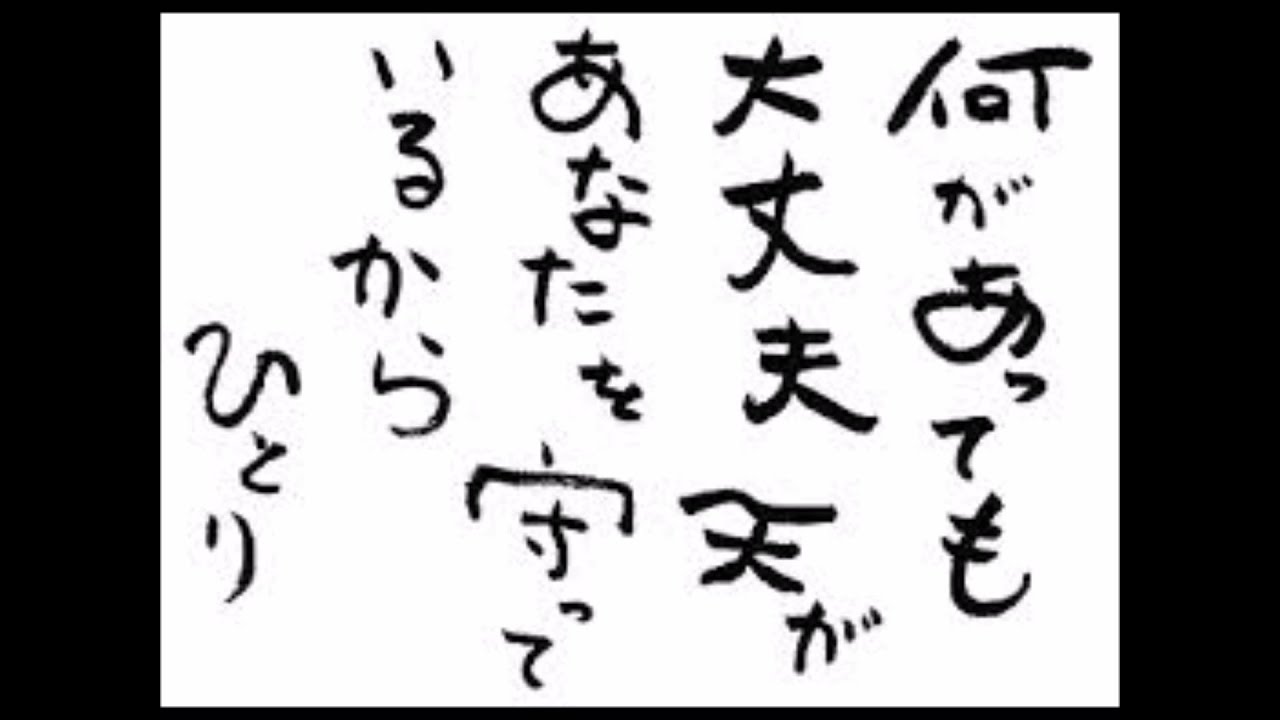 何があっても
大丈夫天が
あなたを守って
いるから
ひとり